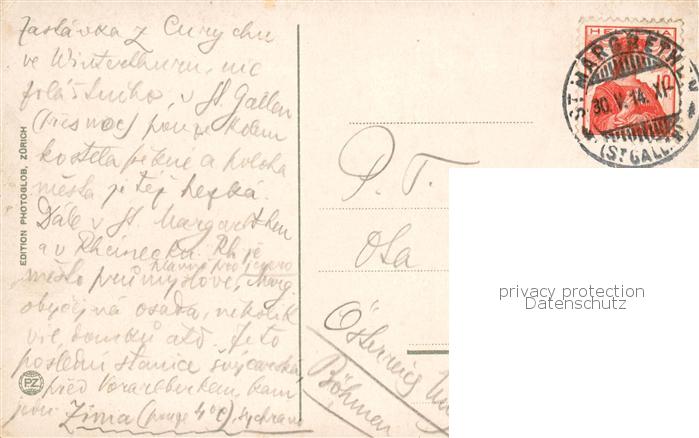 Zastávka z Curychu
ve Winterthuru, nic
zvláštního, v St. Gallen
(přes noc) pouze kolem
kostela pěkné a poloha
města je též hezká.
Dále v St. Margarethen
a v Rheinecku. Rh. je
město průmyslové, Marg.
hlavně pro
obyčejná osada, několik
vil, domků atd. Je to
poslední stanice švýcarská,
před Vorarlberkem, kam
jedu. Zima (pouze 4°C),
EDITION PHOTOGLOB, ZÜRICH
PZ
HELVETIA
10
ST MARGRETHEN
30.V.14.XII
(ST GALLEN)
P. T.
Österreich
Böhmen
privacy protection
Datenschutz